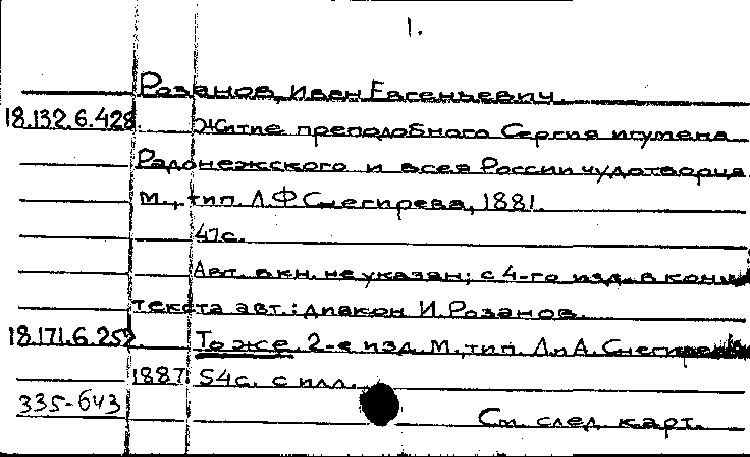 1.
Розанов, Иван Евгеньевич.
18.132.6.428. Житие преподобного Сергия игумена
Радонежсского и всея России чудотворца.
М., тип. Л.Ф Снегирева, 1881.
47с.
Авт. в кн. не указан; с 4-го изд. в конце
текста авт.: диакон И. Розанов.
18.171.6.252. То же. 2-е изд. М., тип. Л. и А. Снегиревых
1887. 54с. с илл.
335-643
См. след. карт.